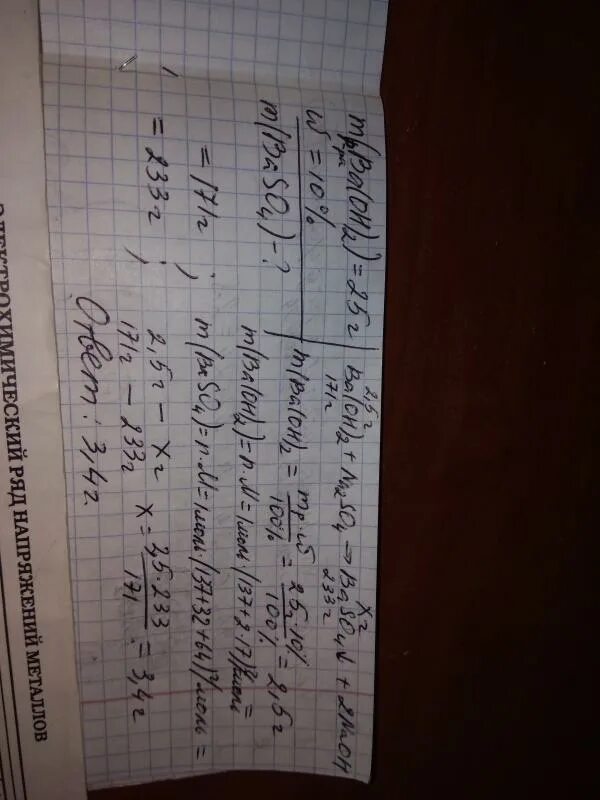 mр-ра(Ba(OH)₂) = 25г
W = 10%
m(BaSO₄) - ?
2,5г Xг
Ba(OH)₂ + Na₂SO₄ → BaSO₄↓ + 2NaOH
171г 233г
m(Ba(OH)₂ = mр·ω / 100% = 25·10% / 100% = 2,5г
m(Ba(OH)₂) = n·M = 1моль·(137+2·17)г/моль =
= 171г ;
m(BaSO₄) = n·M = 1моль·(137+32+64)г/моль =
= 233г ;
2,5г – Xг
171г – 233г
X = 2,5·233 / 171 = 3,4г
Ответ: 3,4г.
ЭЛЕКТРОХИМИЧЕСКИЙ РЯД НАПРЯЖЕНИЙ МЕТАЛЛОВ